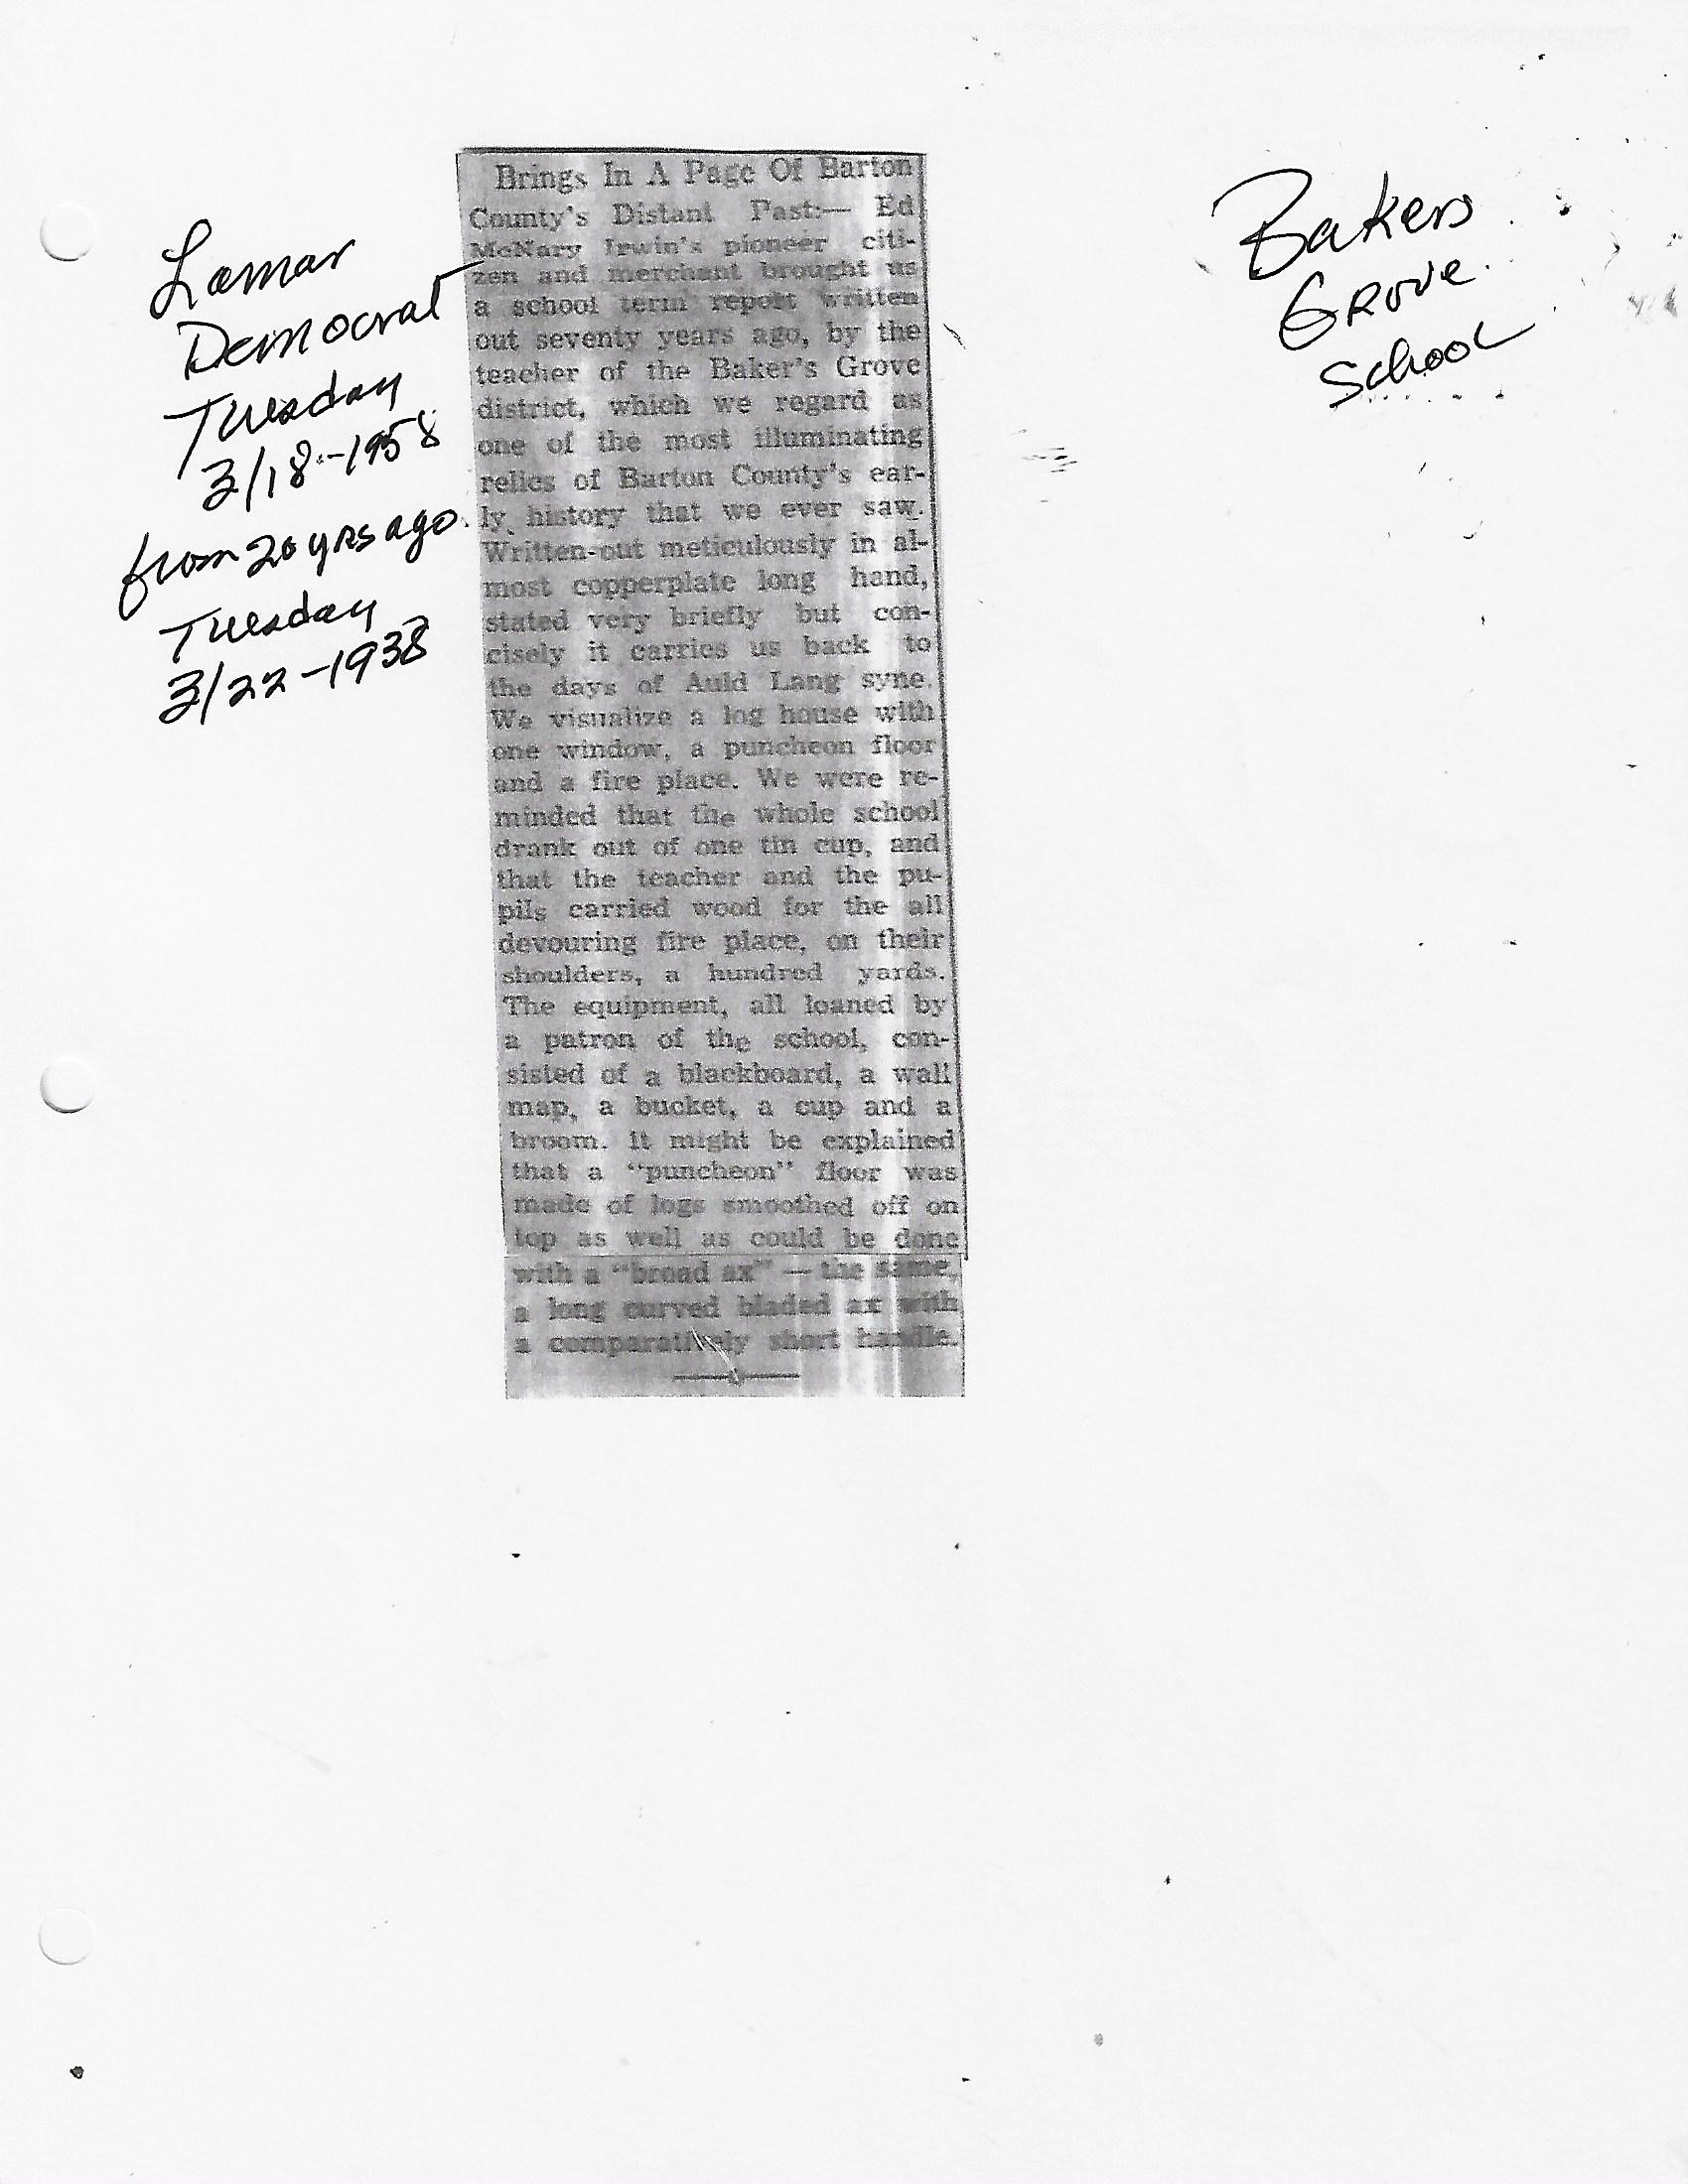 Lamar
Democrat
Tuesday
3/18-1958
from 20 yrs ago.
Tuesday
3/22-1938
Bakers
Grove
School
Brings In A Page Of Barton
County's Distant Past:— Ed
McNary Irwin's pioneer citi-
zen and merchant brought us
a school term report written
out seventy years ago, by the
teacher of the Baker's Grove
district, which we regard as
one of the most illuminating
relics of Barton County's ear-
ly history that we ever saw.
Written-out meticulously in al-
most copperplate long hand,
stated very briefly but con-
cisely it carries us back to
the days of Auld Lang syne.
We visualize a log house with
one window, a puncheon floor
and a fire place. We were re-
minded that the whole school
drank out of one tin cup, and
that the teacher and the pu-
pils carried wood for the all
devouring fire place, on their
shoulders, a hundred yards.
The equipment, all loaned by
a patron of the school, con-
sisted of a blackboard, a wall
map, a bucket, a cup and a
broom. It might be explained
that a "puncheon" floor was
made of logs smoothed off on
top as well as could be done
with a "broad ax" — the same,
a long curved bladed ax with
a comparatively short handle.